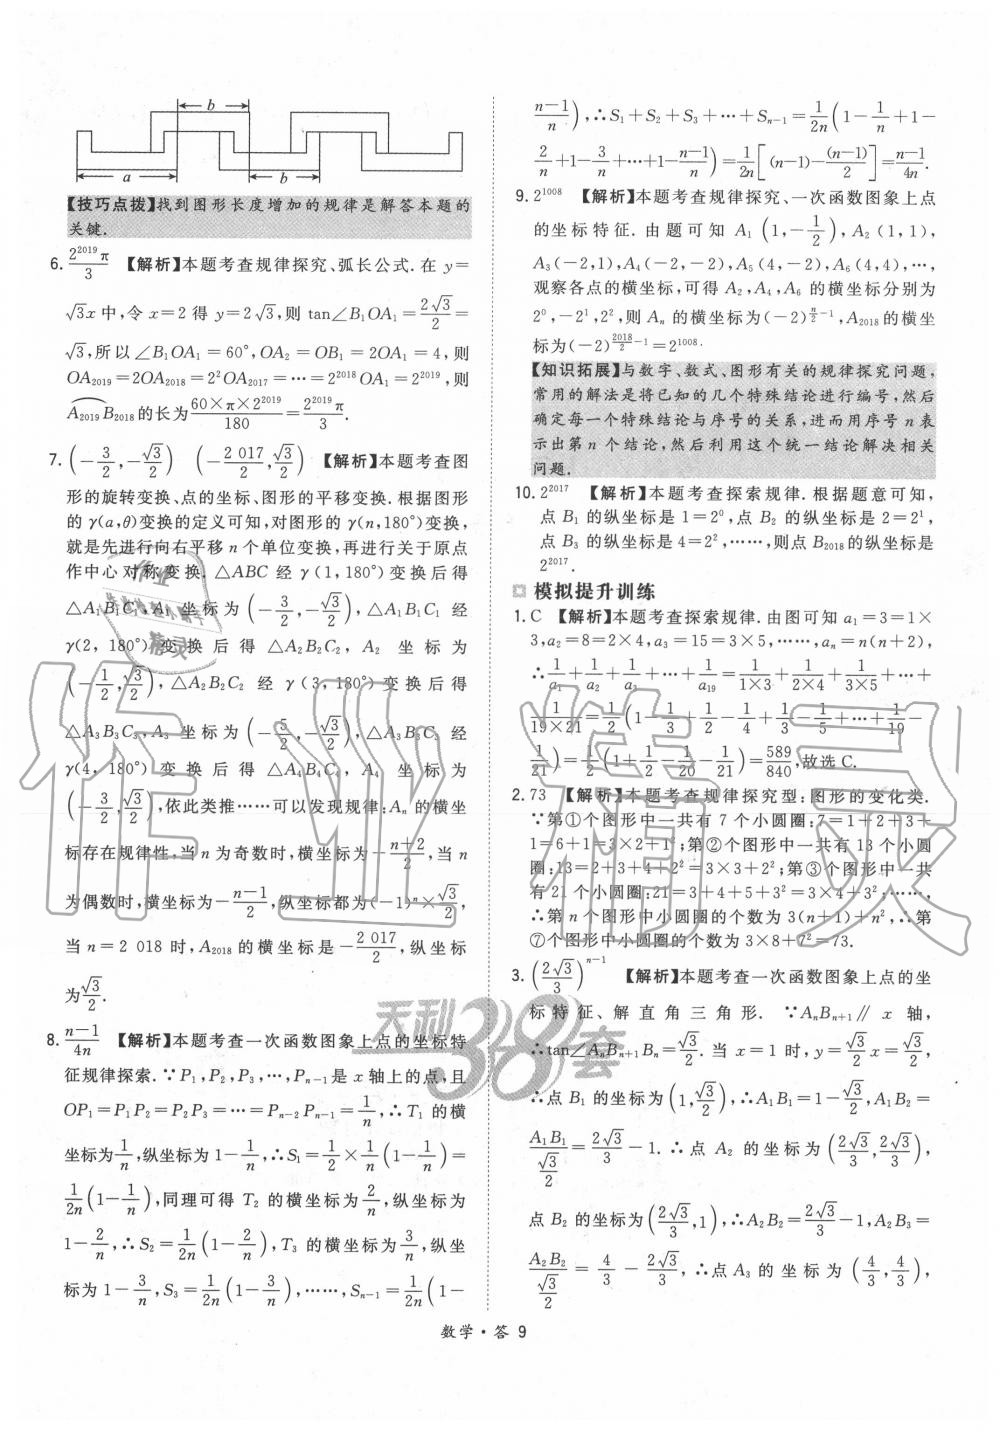 b
a
b
【技巧点拨】找到图形长度增加的规律是解答本题的
关键.
6. 2^2019π/3 【解析】本题考查规律探究、弧长公式.在 y=
√3x 中,令 x=2 得 y=2√3,则 tan∠B₁OA₁=2√3/2=
√3,所以∠B₁OA₁=60°,OA₂=OB₁=2OA₁=4,则
OA₂₀₁₉=2OA₂₀₁₈=2²OA₂₀₁₇=…=2^2018OA₁=2^2019,则
A₂₀₁₉B₂₀₁₈的长为 60×π×2^2019/180=2^2019π/3.
7. (-3/2,-√3/2) (-2 017/2,√3/2) 【解析】本题考查图
形的旋转变换、点的坐标、图形的平移变换.根据图形
的 γ(a,θ)变换的定义可知,对图形的 γ(n,180°)变换,
就是先进行向右平移 n 个单位变换,再进行关于原点
作中心对称变换.△ABC 经 γ(1,180°)变换后得
△A₁B₁C₁,A₁ 坐标为(-3/2,-√3/2),△A₁B₁C₁ 经
γ(2,180°)变换后得△A₂B₂C₂,A₂ 坐标为
(-1/2,√3/2),△A₂B₂C₂ 经 γ(3,180°)变换后得
△A₃B₃C₃,A₃ 坐标为(-5/2,-√3/2),△A₃B₃C₃ 经
γ(4,180°)变换后得△A₄B₄C₄,A₄ 坐标为
(-3/2,√3/2),依此类推……可以发现规律:Aₙ 的横坐
标存在规律性,当 n 为奇数时,横坐标为-n+2/2,当 n
为偶数时,横坐标为-n-1/2,纵坐标都为(-1)ⁿ×√3/2,
当 n=2 018 时,A₂₀₁₈的横坐标是-2 017/2,纵坐标
为√3/2.
8. n-1/4n 【解析】本题考查一次函数图象上点的坐标特
征规律探索.∵P₁,P₂,P₃,…,Pₙ₋₁是 x 轴上的点,且
OP₁=P₁P₂=P₂P₃=…=Pₙ₋₂Pₙ₋₁=1/n,∴T₁ 的横
坐标为1/n,纵坐标为1-1/n,∴S₁=1/2×1/n(1-1/n)=
1/2n(1-1/n),同理可得 T₂ 的横坐标为2/n,纵坐标为
1-2/n,∴S₂=1/2n(1-2/n),T₃ 的横坐标为3/n,纵坐
标为1-3/n,S₃=1/2n(1-3/n),……,Sₙ₋₁=1/2n(1-
n-1/n),∴S₁+S₂+S₃+…+Sₙ₋₁=1/2n(1-1/n+1-
2/n+1-3/n+…+1-n-1/n)=1/2n[(n-1)-(n-1)/2]=n-1/4n.
9. 2^1008 【解析】本题考查规律探究、一次函数图象上点
的坐标特征.由题可知 A₁(1,-1/2),A₂(1,1),
A₃(-2,1),A₄(-2,-2),A₅(4,-2),A₆(4,4),…,
观察各点的横坐标,可得 A₂,A₄,A₆ 的横坐标分别为
2⁰,-2¹,2²,则 Aₙ 的横坐标为(-2)^(n/2-1),A₂₀₁₈的横坐
标为(-2)^(2018/2-1)=2^1008.
【知识拓展】与数字、数式、图形有关的规律探究问题,
常用的解法是将已知的几个特殊结论进行编号,然后
确定每一个特殊结论与序号的关系,进而用序号 n 表
示出第 n 个结论,然后利用这个统一结论解决相关
问题.
10. 2^2017 【解析】本题考查探索规律.根据题意可知,
点 B₁ 的纵坐标是 1=2⁰,点 B₂ 的纵坐标是 2=2¹,
点 B₃ 的纵坐标是 4=2²,……,则点 B₂₀₁₈的纵坐标是
2^2017.
模拟提升训练
1. C 【解析】本题考查探索规律.由图可知 a₁=3=1×
3,a₂=8=2×4,a₃=15=3×5,……,aₙ=n(n+2),
∴1/a₁+1/a₂+1/a₃+…+1/a₁₉=1/1×3+1/2×4+1/3×5+…+
1/19×21=1/2(1-1/3+1/2-1/4+1/3-1/5+…+1/19-
1/21)=1/2(1+1/2-1/20-1/21)=589/840,故选 C.
2. 73 【解析】本题考查规律探究型:图形的变化类.
∵第①个图形中一共有 7 个小圆圈:7=1+2+3+
1=6+1=3×2+1²;第②个图形中一共有 13 个小圆
圈:13=2+3+4+2²=3×3+2²;第③个图形中一共
有 21 个小圆圈:21=3+4+5+3²=3×4+3²;……,
∴第 n 个图形中小圆圈的个数为 3(n+1)+n²,∴第
⑦个图形中小圆圈的个数为 3×8+7²=73.
3. (2√3/3)ⁿ⁻¹ 【解析】本题考查一次函数图象上点的坐
标特征、解直角三角形.∵AₙBₙ₊₁∥x 轴,
∴tan∠AₙBₙ₊₁Bₙ=√3/2.当 x=1 时,y=√3/2x=√3/2,
∴点 B₁ 的坐标为(1,√3/2),∴A₁B₁=1-√3/2,A₁B₂=
A₁B₁/(√3/2)=2√3/3-1.∴点 A₂ 的坐标为(2√3/3,2√3/3),
点 B₂ 的坐标为(2√3/3,1),∴A₂B₂=2√3/3-1,A₂B₃=
A₂B₂/(√3/2)=4/3-2√3/3,∴点 A₃ 的坐标为(4/3,4/3),
数学·答 9
作业精灵
天利38套